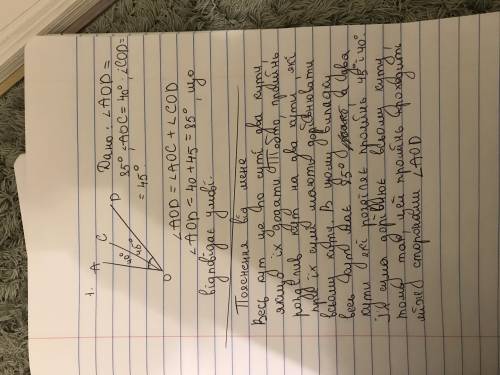 1.
A
C
D
O
40°
45°
Дано: ∠AOD =
85° ∠AOC = 40° ∠COD =
= 45°.
∠AOD = ∠AOC + ∠COD
∠AOD = 40 + 45 = 85°, що
відповідає умові.
Пояснення від мене
Весь кут це по суті два кути,
якщо їх додати. Тобто, промінь
розділив кут на два кути, які
при їх сумі мають дорівнювати
всьому куту. В цьому випадку
весь кут має 85° а два
кути які розділяє промінь 45° і 40°.
Їх сума дорівнює всьому куту,
тому так, цей промінь проходить
між сторонами ∠AOD